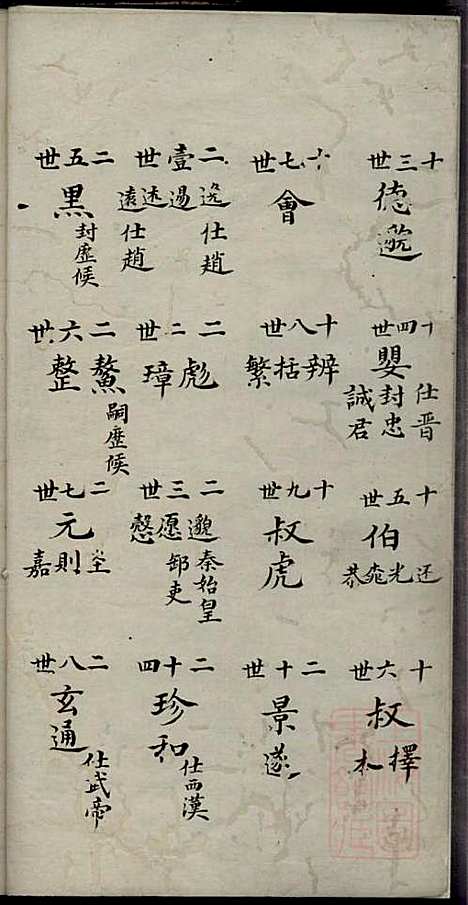 十三世
德邈
十四世
嬰
仕晋
封忠
誠君
十五世
伯
还光
恭
十六世
叔
擇
本
十七世
會
十八世
辨括繁
十九世
叔虎
二十世
景遂
二壹世
逸仕趙
逷
逺仕趙
二二世
彪璋
二三世
邈秦始皇
愿邹吏
慤
二十四
珍和
仕西漢
二五世
黑
封歷候
二六世
鰲整
嗣歷候
二七世
元
則
嘉
二八世
玄通
仕武帝